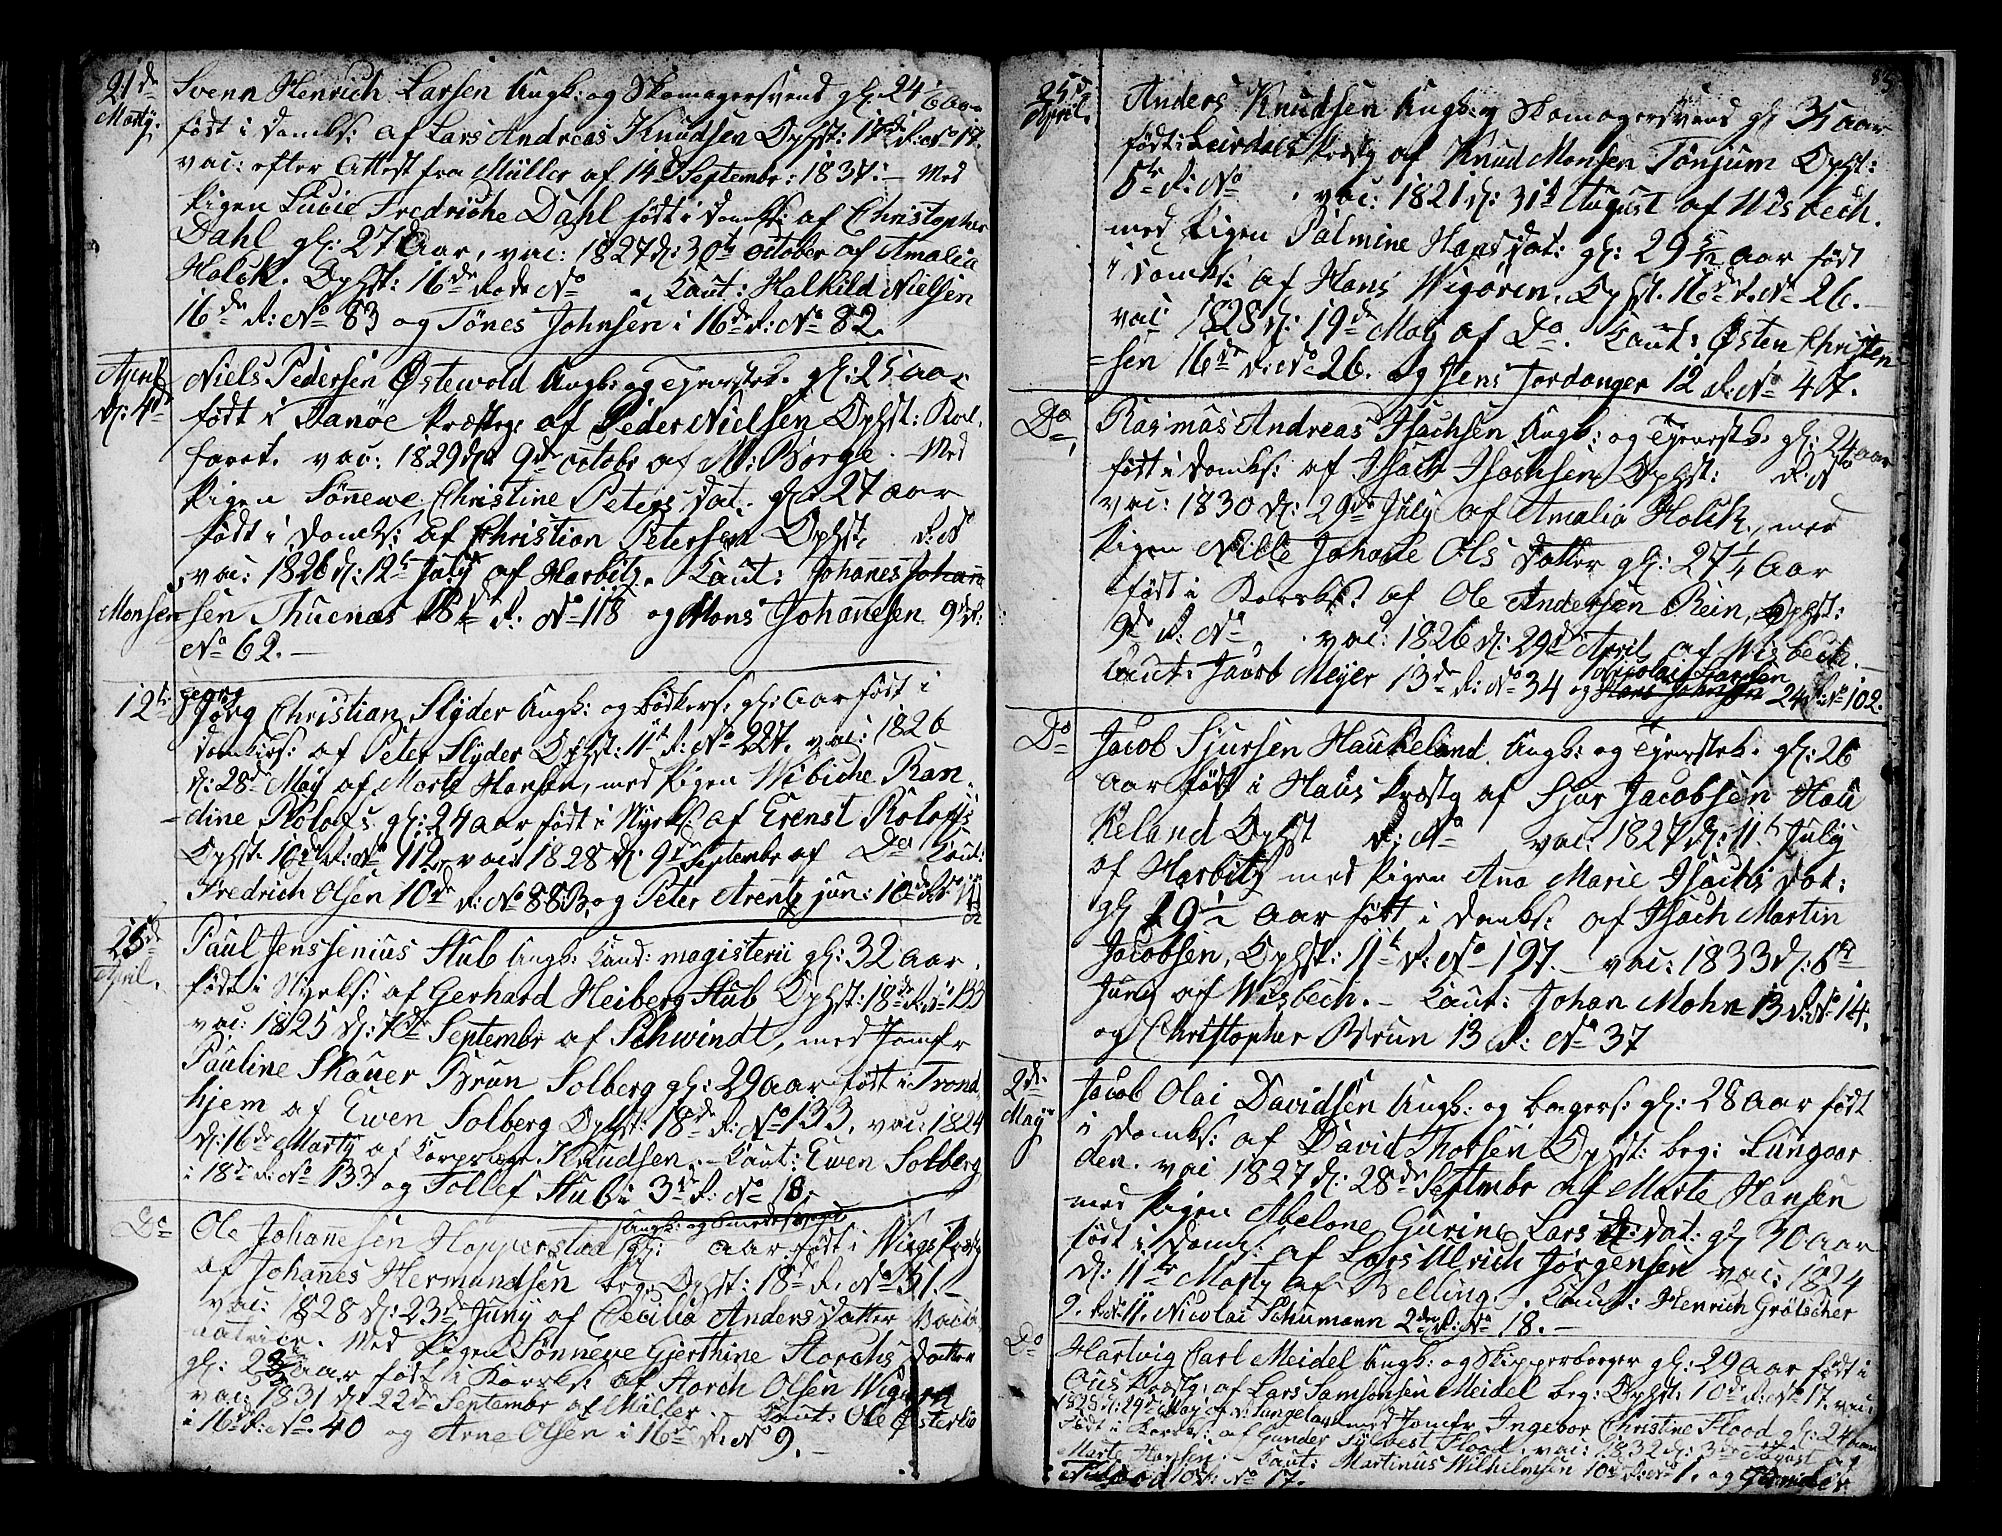 21de Svenn Henrich Larsen Ungk: og Skomagersvend gl: 24 1/6 Aar
Martij. født i Domks: af Lars Andreas Knudsen Ophst: 17de R: No 17.
vac: efter Attest fra Müller af 14d Septembr: 1837: – Med
Pigen Lucie Fredriche Dahl født i Domks: af Christopher
Dahl gl: 27 Aar, vac: 1827 d: 30te october af Amalia
Holck. Ophst: 16de Rode No . Caut: Halkild Nielsen
16de R: No 83 og Tönes Johnsen i 16de R: No 82.
April Niels Pedersen Østewold Ungk: og Tjenestek. gl: 25 aar
d: 4de født i Manøe Præstg: af Peder Nielsen Ophst: Kol,
faret. vac: 1829 d: 9de octobr af M: Börge. Med
Pigen Sönewe Christine Peters Dat: gl: 27 aar
født i Domks: af Christian Petersen Ophst: R: No
vac: 1826 d: 12te July af Harbitz. Caut: Johanes Johan
Monsen sen Thuenæs 18de R: No 118 og Mons Johanesen 9de R:
No 62. –
12te Georg
Jørg Christian Slyder Ungk: og Bødkers: gl: aar født i
Domkirs: af Peter Slyder Ophst: 11te R: No 227. vac: 1826
d: 28de May af Morte Hansen, med Pigen Wibiche Ran-
-dine Roloffs gl: 24 aar født i Nyeks: af Erenst Roloffs
Ophst. 16de R: No 112, vac: 1828 d: 9de Septembr af Do Caut:
Fredrich Olsen 10de R: No 883. og Peter Arentz jun: 10de R: No
25de Paul Jenssenius Stub Ungk: Cand: magisterii gl: 32 aar.
April. føde i Nyeks: af Gerhard Heiberg Stub Ophst: 18de R: No 133
vac: 1825 d: 7de Septembr af Schwindt, med Jomfr
Pauline Skauer Brun Solberg gl: 29 aar født i Trond
hjem af Ewen Solberg Ophst: 18de R: No 133. vac: 1824
d: 16de Marty af Corpslæge Knudsen. – Caut: Ewen Solberg
i 18de R: No 133 og Tollef Stub i 3de R: No 18.
Ungk: og Smedesvend
Do Ole Johannesen Hopperstad gl: aar født i Wiigs Præstg
af Johannes Hermundsen beg: Ophst: 18de R: No 51. –
vac: 1828 d: 23de Juny af Cecilia Anders Datter Vacci
natrice. Med Pigen Sønneve Gjerthine Storchs Datter
gl: aar født i Korsk: af Storch Olsen Wigøren
vac: 1831 d: 22de Septembr af Müller. – Caut: Ole Østerbø
i 16de R: No. 40 og Arne Olsen i 16de R: No 9. –
85
25de Anders Knudsen Ungk: og Skomagersvend gl: 35 aar
April. født i Leirdals Præstg af Knud Monsen Tönjum Ophst:
5te R: No . vac: 1821 d: 31te August af Wisbech.
med Pigen Palmine Hans Dat: gl: 29 5/12 aar født
i Domks: af Hans Wigøren, Ophst. 16de R: No 26.
vac: 1828 d: 19de May af Do. Caut: Østen Christen
=sen 16de R: No 26. og Jens Jordanger 12 R: No 47.
Do Rasmus Andreas Isachsen Ungk: og Tjenestek. gl: 24 aar
født i Domks: af Isach Isachsen Ophst: R: No
vac: 1830 d: 29de July af Amalia Holck, med
Pigen Nille Johane Ols Datter gl: 27 1/4 Aar
født i Korsks: af Ole Andersen Rein, Ophst:
9de R: No . vac: 1826 d: 29de April af Wisbech.
Nicolai Larsen
Caut: Jacob Meyer 13de R: No 34 og Hans Johnsen 24 R: No 102.
Do Jacob Sjursen Haukeland, Ungk: og Tjenestek. gl: 26
aar født i Haus Præstg af Sjur Jacobsen Hau
keland Ophst R: No vac: 1827 d: 11te July
af Harbitz med Pigen Ana Marie Isachs Dat:
gl 19 1/2 aar født i Domks: af Isach Martin
Jacobsen, Ophst: 11te R: No 197. – vac: 1833 d: 6te
Juny af Wisbech. – Caut: Johan Mohn 13 R: No 14.
og Christopher Brun 13 R: No 37
2de Jacob Olai Davidsen Ungk: og Bagers: gl: 28 aar født
May i Domks: af David Thorsen Ophst: beg: Lungaar
den. vac 1827 d: 28de Septembr af Marte Hansen
med Pigen Abelone Gurine Lars Dat: gl 30 aar
født i Domk: af Lars Ulrich Jørgensen vac: 1824
d: 11te Marty af Belling. Caut: Henrich Grötscher
2. R: No 11. Nicolai Schumann 2de R: No 18. –
Do Hartvig Carl Meidel Ungk: og Skipperborger gl: 29 aar født i
Ous Præstg: af Lars Samsonsen Meidel beg: Ophst: 10de R: No 17. vac:
1825 d: 29de May af med Jomfr Ingebor Christine Flood gl: 24 aar
født i Korsks: af Gunder Sylvest Flood, vac: 1832 d: 3de August af
Marte Hansen. – Caut: Martinus Wilhelmsen 10de R: No 1. og
10de R: No 17.